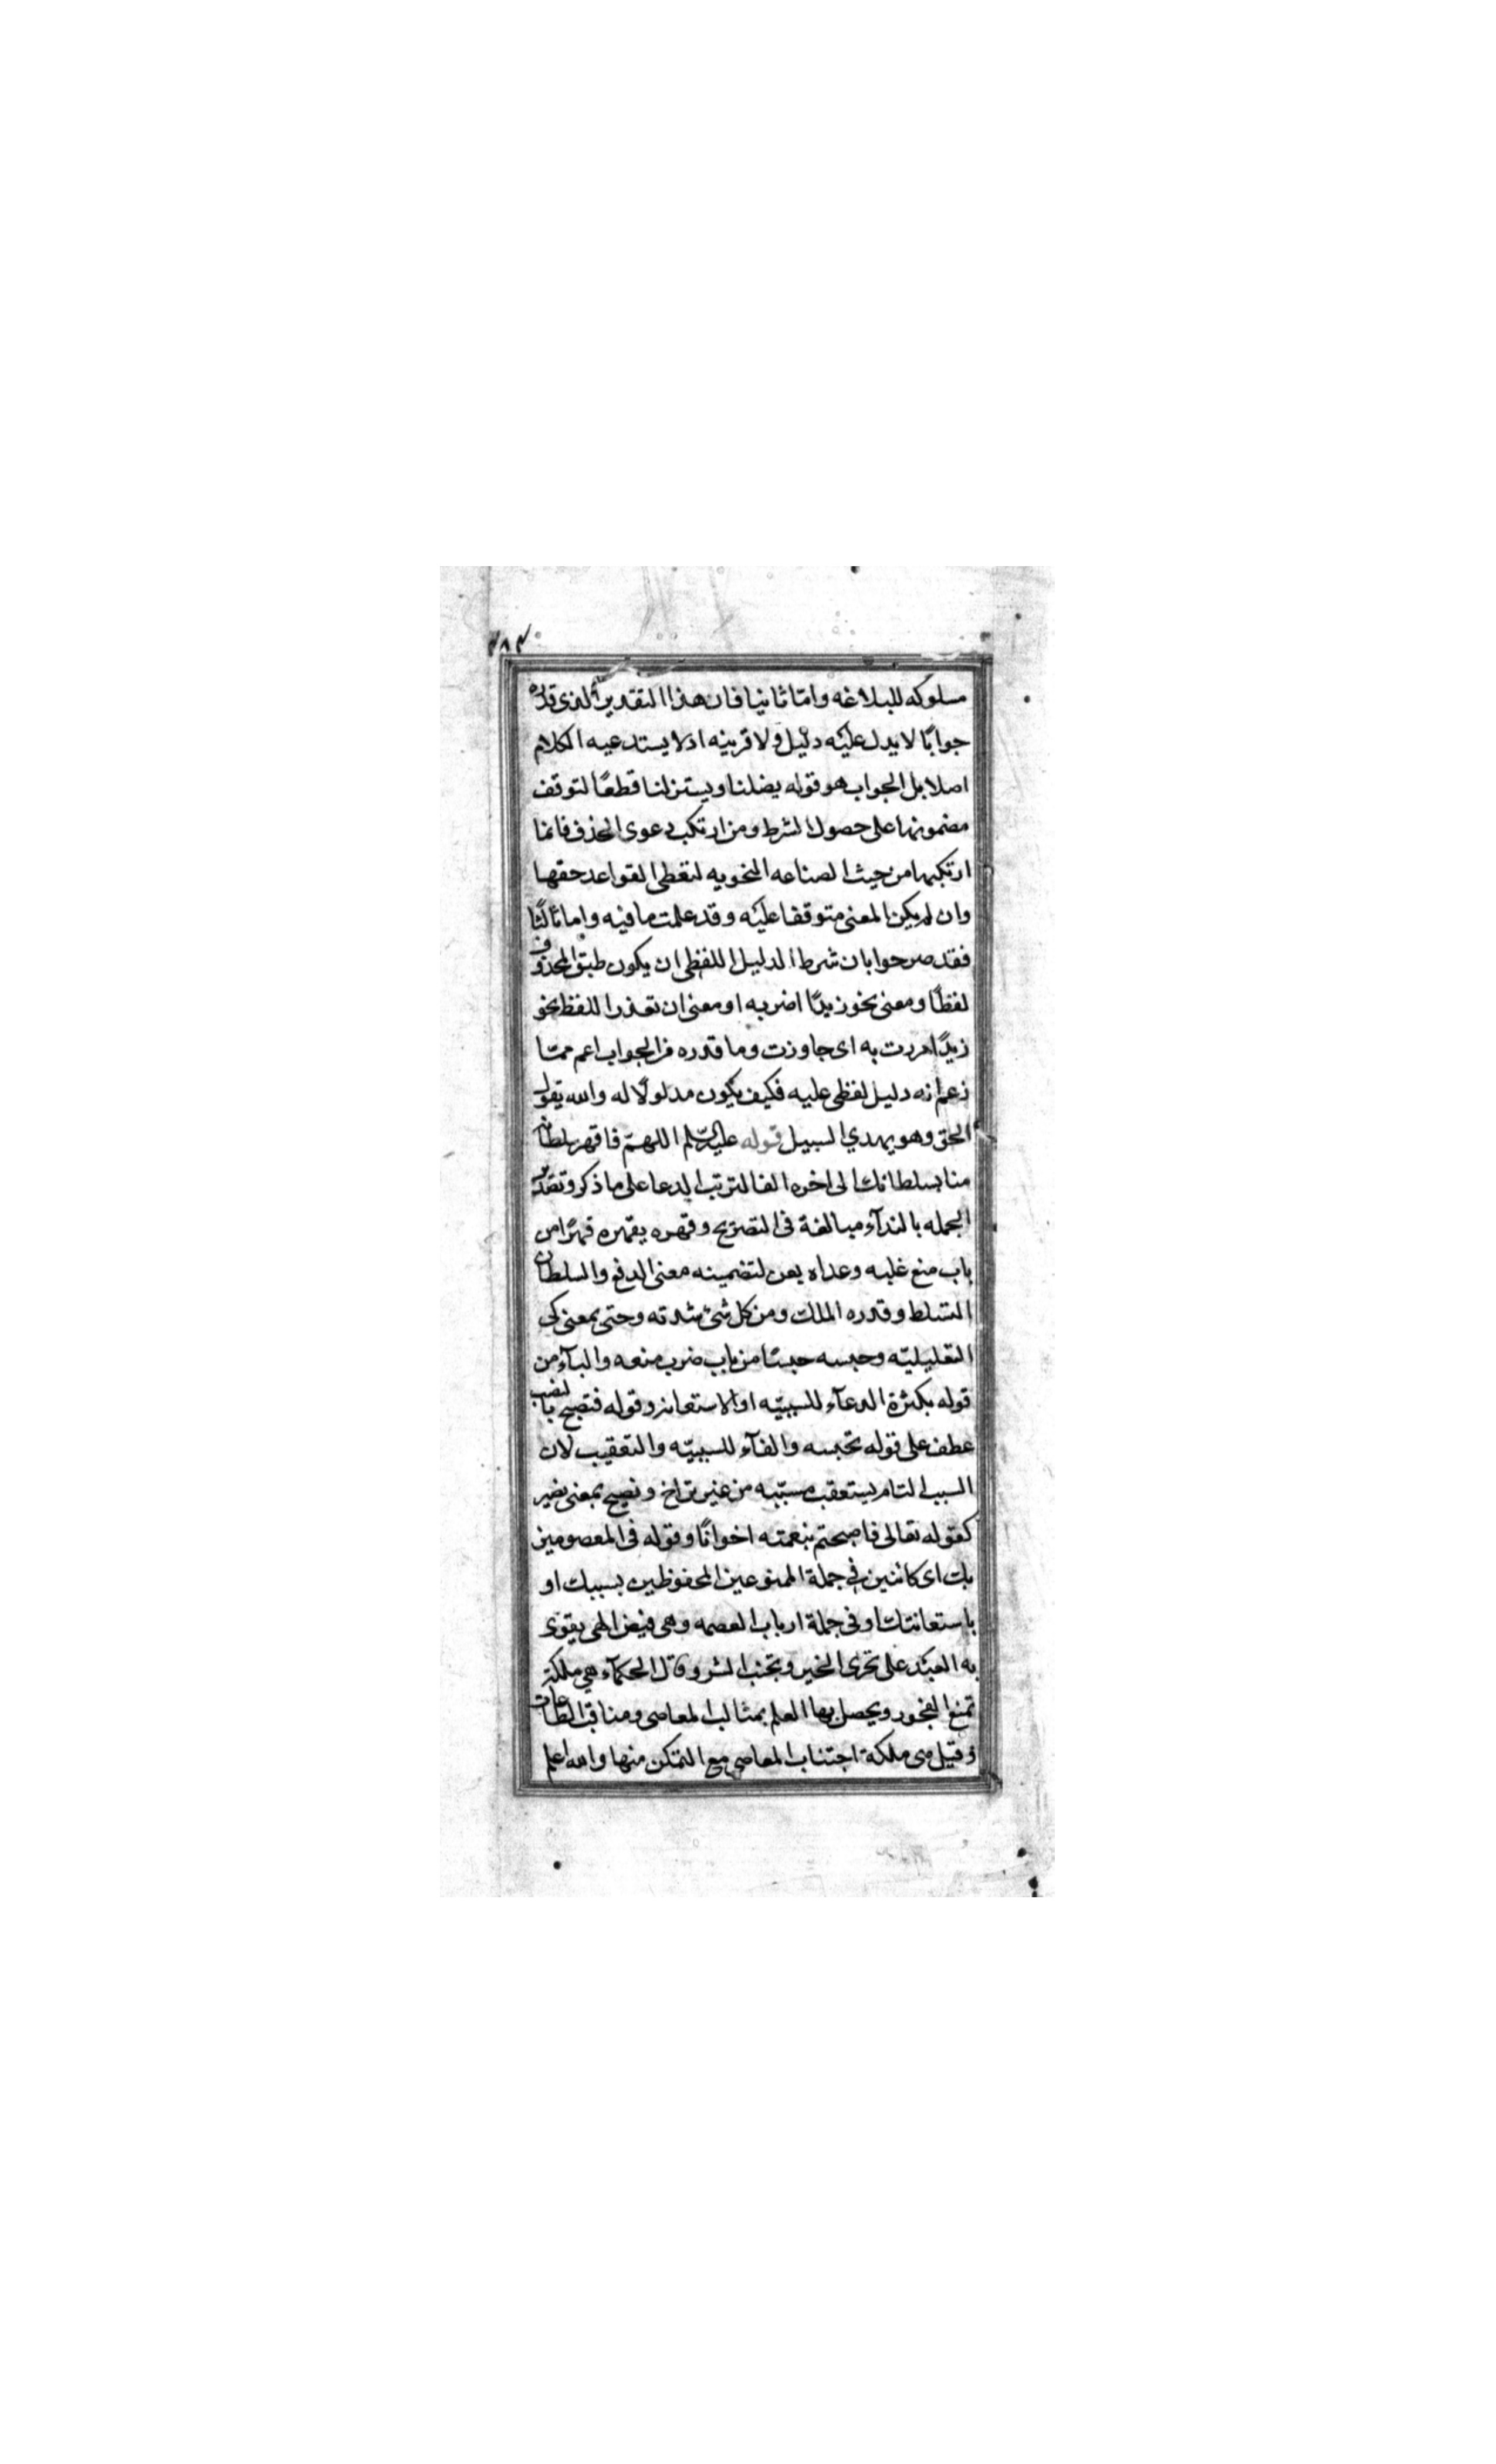 ٣٨٣
مسلوكه للبلاغه واما ثانيا فان هذا التقدير الذى قدره
جوابًا لا يدل عليه دليل ولا قرينه اذ لا يستدعيه الكلام
اصلا بل الجواب هو قوله يضلنا ويستزلنا قطعًا لتوقف
مضمونها على حصول الشرط ومن ارتكب دعوى الحذف فانما
ارتكبها من حيث الصناعه النحويه لتعطى القواعد حقها
وان لم يكن المعنى متوقفا عليه وقد علمت ما فيه واما ثالثًا
فقد صرحوا بان شرط الدليل اللفظى ان يكون طبق المحذوف
لفظًا ومعنى نحو زيدًا اضربه او معنى ان تعذر اللفظ نحو
زيدًا مررت به اى جاوزت وما قدره من الجواب اعم ممّا
زعم انه دليل لفظى عليه فكيف يكون مدلولًا له والله يقول
الحق وهو يهدي السبيل قوله عليه السّلم اللهمّ فاقهر سلطانه
عنا بسلطانك الى اخره الفا لترتب الدعا على ما ذكر وتصدير
الجمله بالندآء مبالغة فى التضرع وقهره يقهره قهرًا من
باب منع غلبه وعداه بعن لتضمينه معنى الدفع والسلطان
التسلط وقدره الملك ومن كل شئ شدته وحتى بمعنى كى
التعليليّه وحبسه حبسًا من باب ضرب منعه والبآء من
قوله بكثرة الدعآء للسببيّه او الاستعانه وقوله فنصبح بالنصب
عطف على قوله تحبسه والفآء للسببيّه والتعقيب لان
السبب التام يستعقب مسبّبه من غير تراخ ونصبح بمعنى نصير
كقوله تعالى فاصبحتم بنعمته اخوانًا وقوله فى المعصومين
بك اى كائنين فى جملة الممنوعين المحفوظين بسببك او
باستعانتك او فى جملة ارباب العصمه وهى فيض الهى يقوى
به العبد على تحرى الخير وتجنب الشر وقال الحكمآء هى ملكة
تمنع الفجور ويحصل بها العلم بمثالب المعاصى ومناقب الطاعات
وقيل هى ملكة اجتناب المعاصى مع التمكن منها والله اعلم